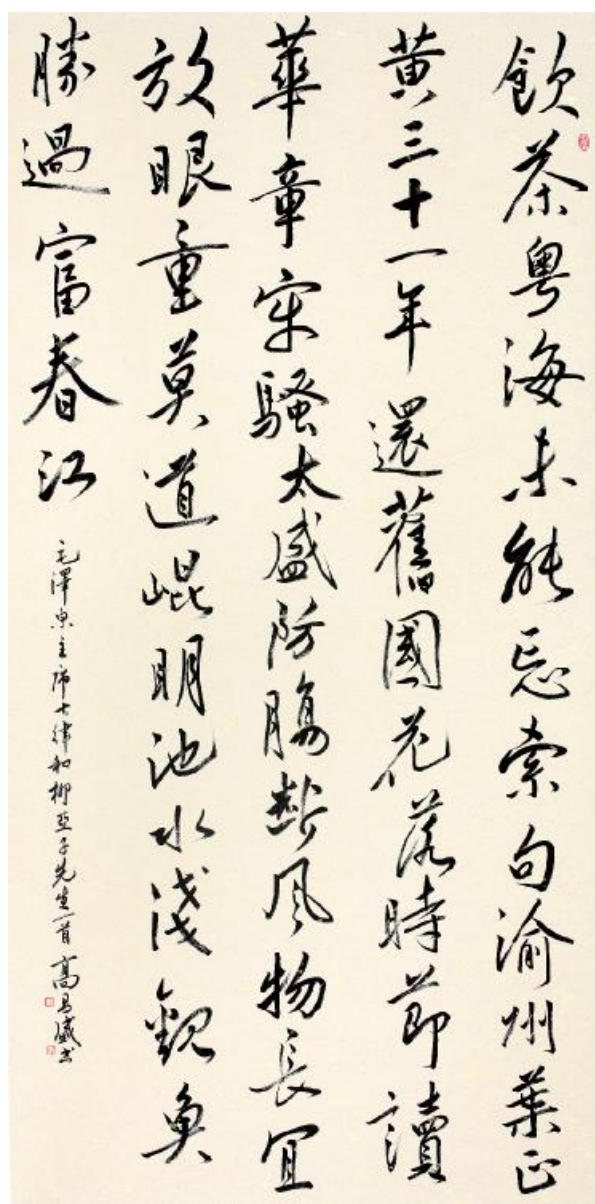 飲茶粤海未能忘索句渝州葉正
黄三十一年還舊國花落時節讀
華章牢騷太盛防腸斷風物長宜
放眼量莫道崐明池水淺觀魚
勝過富春江
毛澤東主席七律和柳亞子先生一首 高昌盛书